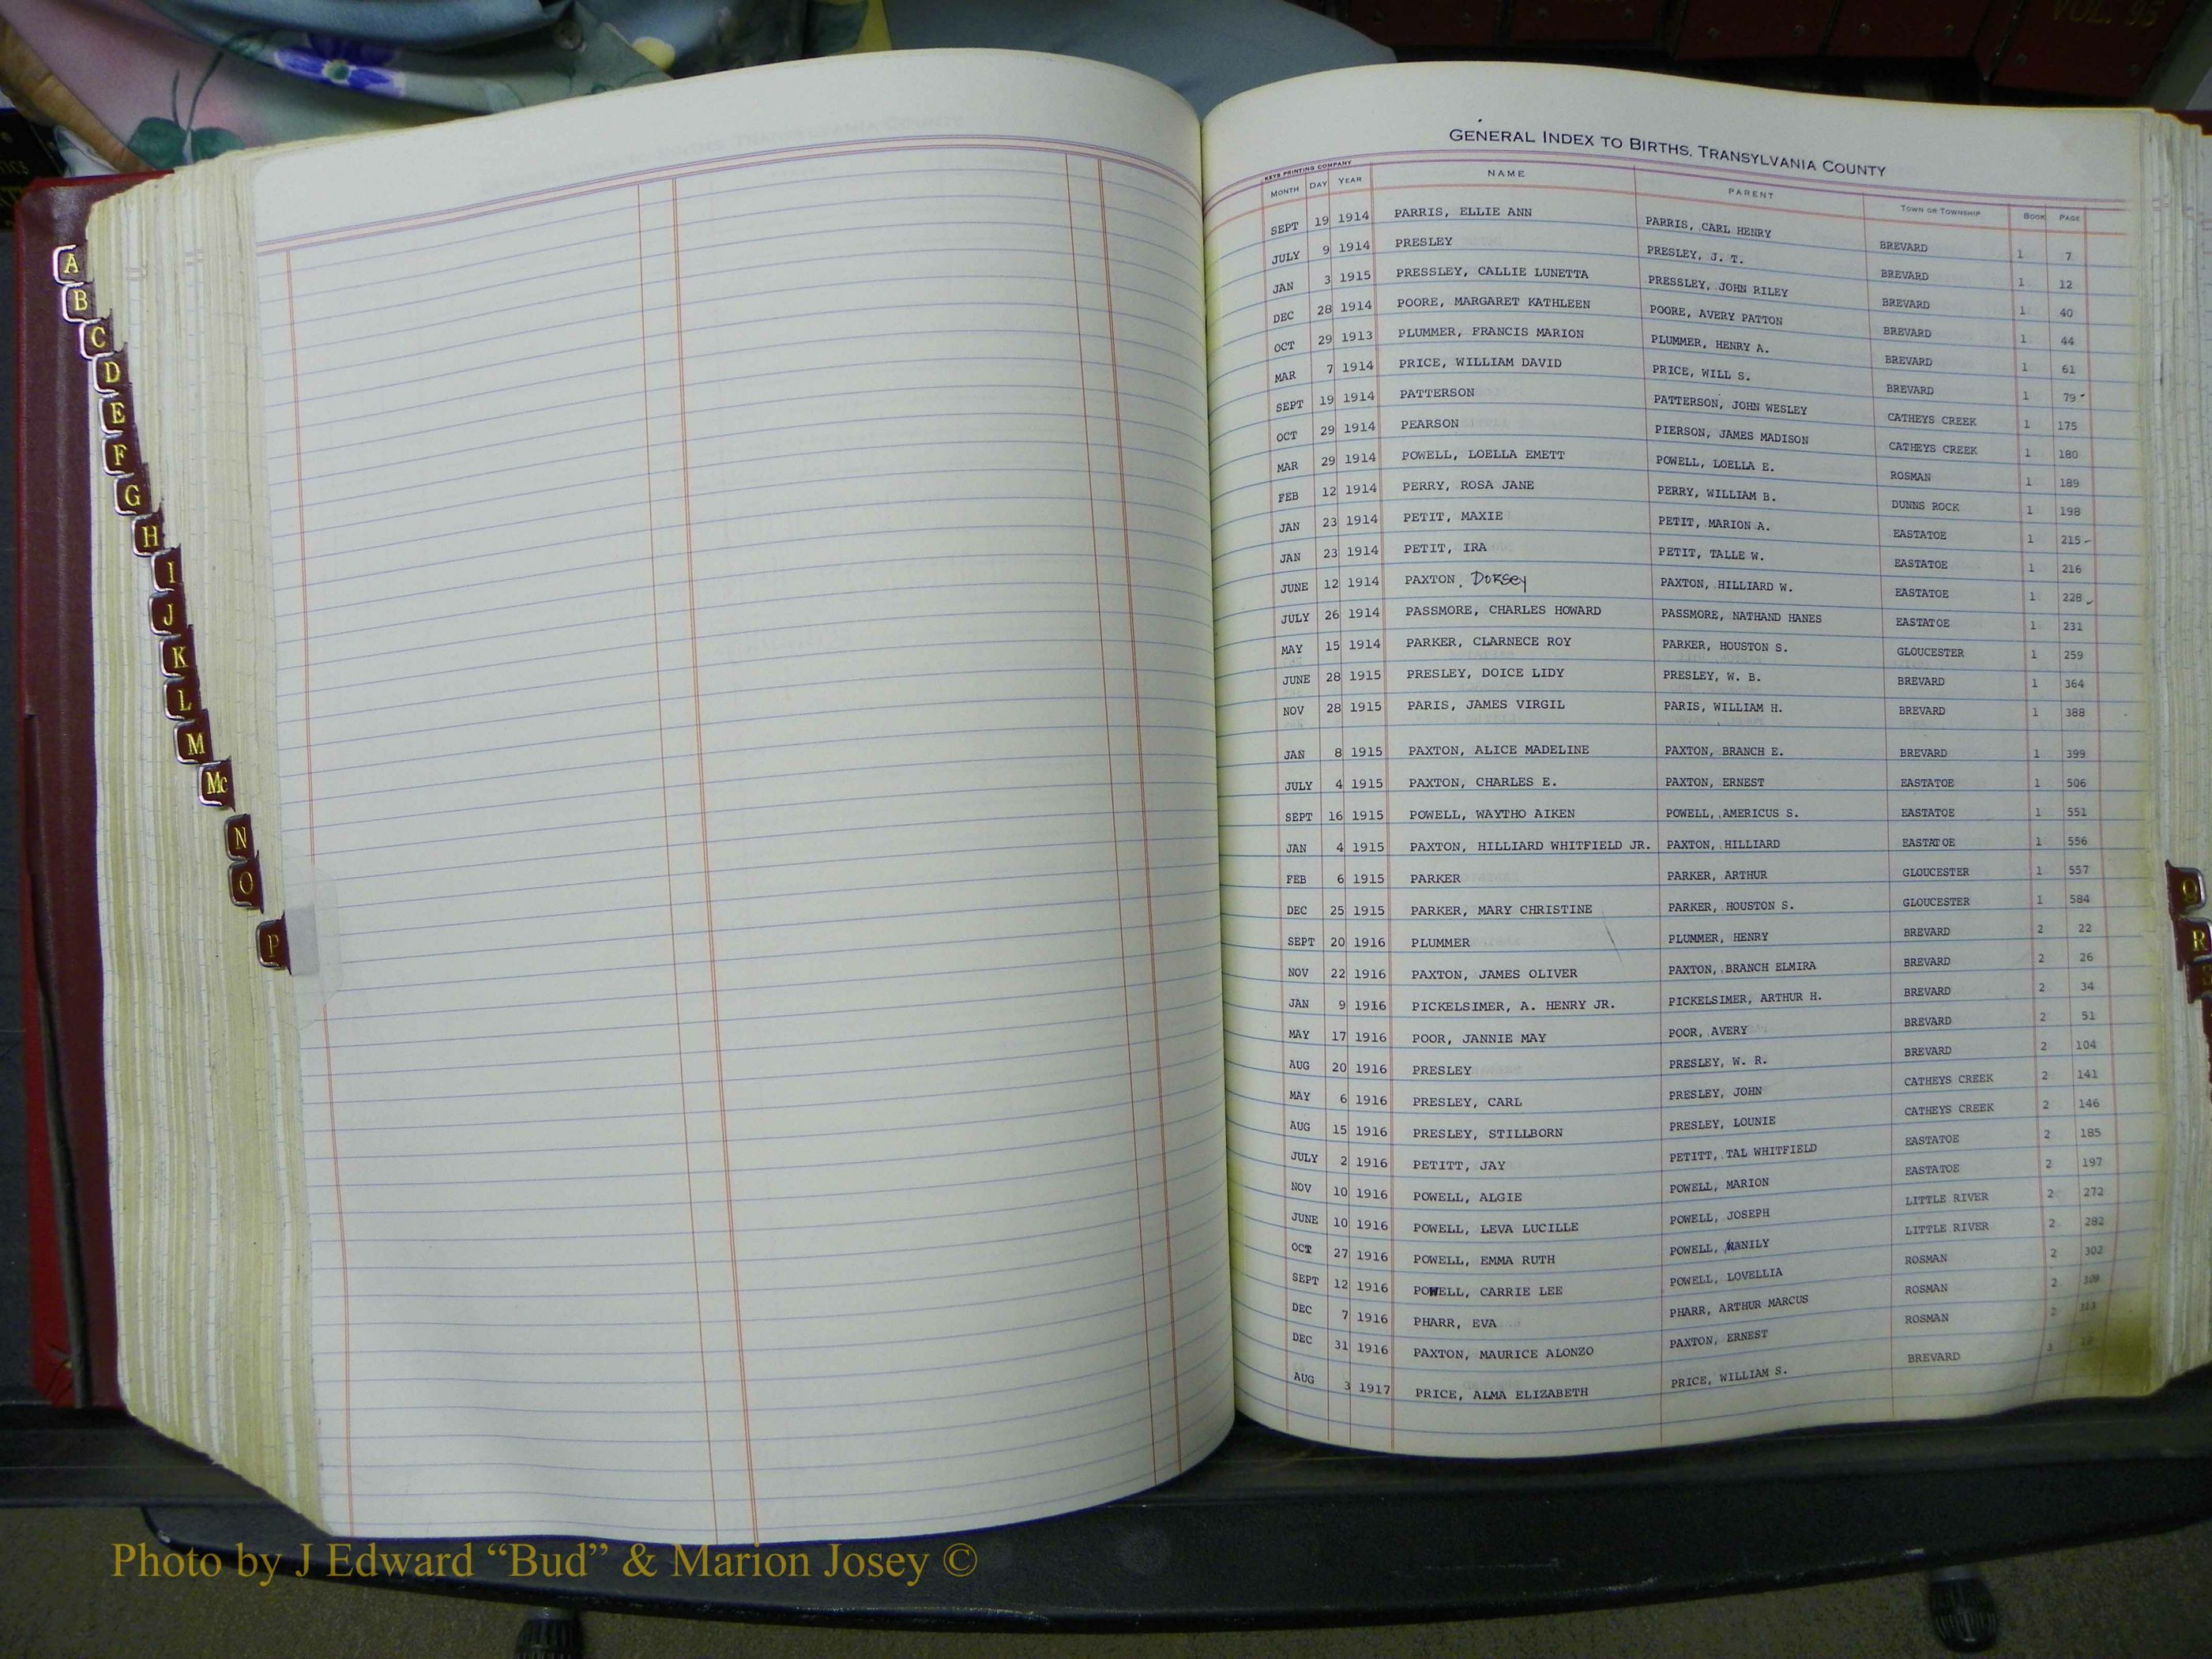 VOL. 95
A
B
C
D
E
F
G
H
I
J
K
L
M
Mc
N
O
P
GENERAL INDEX TO BIRTHS, TRANSYLVANIA COUNTY
KEYS PRINTING COMPANY
MONTH DAY YEAR NAME PARENT TOWN OR TOWNSHIP BOOK PAGE
SEPT 19 1914 PARRIS, ELLIE ANN PARRIS, CARL HENRY BREVARD 1 7
JULY 9 1914 PRESLEY PRESLEY, J. T. BREVARD 1 12
JAN 3 1915 PRESSLEY, CALLIE LUNETTA PRESSLEY, JOHN RILEY BREVARD 1 40
DEC 28 1914 POORE, MARGARET KATHLEEN POORE, AVERY PATTON BREVARD 1 44
OCT 29 1913 PLUMMER, FRANCIS MARION PLUMMER, HENRY A. BREVARD 1 61
MAR 7 1914 PRICE, WILLIAM DAVID PRICE, WILL S. BREVARD 1 79
SEPT 19 1914 PATTERSON PATTERSON, JOHN WESLEY CATHEYS CREEK 1 175
OCT 29 1914 PEARSON PIERSON, JAMES MADISON CATHEYS CREEK 1 180
MAR 29 1914 POWELL, LOELLA EMETT POWELL, LOELLA E. ROSMAN 1 189
FEB 12 1914 PERRY, ROSA JANE PERRY, WILLIAM B. DUNNS ROCK 1 198
JAN 23 1914 PETIT, MAXIE PETIT, MARION A. EASTATOE 1 215
JAN 23 1914 PETIT, IRA PETIT, TALLE W. EASTATOE 1 216
JUNE 12 1914 PAXTON, Dorsey PAXTON, HILLIARD W. EASTATOE 1 228
JULY 26 1914 PASSMORE, CHARLES HOWARD PASSMORE, NATHAND HANES EASTATOE 1 231
MAY 15 1914 PARKER, CLARNECE ROY PARKER, HOUSTON S. GLOUCESTER 1 259
JUNE 28 1915 PRESLEY, DOICE LIDY PRESLEY, W. B. BREVARD 1 364
NOV 28 1915 PARIS, JAMES VIRGIL PARIS, WILLIAM H. BREVARD 1 388
JAN 8 1915 PAXTON, ALICE MADELINE PAXTON, BRANCH E. BREVARD 1 399
JULY 4 1915 PAXTON, CHARLES E. PAXTON, ERNEST EASTATOE 1 506
SEPT 16 1915 POWELL, WAYTHO AIKEN POWELL, AMERICUS S. EASTATOE 1 551
JAN 4 1915 PAXTON, HILLIARD WHITFIELD JR. PAXTON, HILLIARD EASTATOE 1 556
FEB 6 1915 PARKER PARKER, ARTHUR GLOUCESTER 1 557
DEC 25 1915 PARKER, MARY CHRISTINE PARKER, HOUSTON S. GLOUCESTER 1 584
SEPT 20 1916 PLUMMER PLUMMER, HENRY BREVARD 2 22
NOV 22 1916 PAXTON, JAMES OLIVER PAXTON, BRANCH ELMIRA BREVARD 2 26
JAN 9 1916 PICKELSIMER, A. HENRY JR. PICKELSIMER, ARTHUR H. BREVARD 2 34
MAY 17 1916 POOR, JANNIE MAY POOR, AVERY BREVARD 2 51
AUG 20 1916 PRESLEY PRESLEY, W. R. BREVARD 2 104
MAY 6 1916 PRESLEY, CARL PRESLEY, JOHN CATHEYS CREEK 2 141
AUG 15 1916 PRESLEY, STILLBORN PRESLEY, LOUNIE CATHEYS CREEK 2 146
JULY 2 1916 PETITT, JAY PETITT, TAL WHITFIELD EASTATOE 2 185
NOV 10 1916 POWELL, ALGIE POWELL, MARION EASTATOE 2 197
JUNE 10 1916 POWELL, LEVA LUCILLE POWELL, JOSEPH LITTLE RIVER 2 272
OCT 27 1916 POWELL, EMMA RUTH POWELL, MANILY LITTLE RIVER 2 282
SEPT 12 1916 POWELL, CARRIE LEE POWELL, LOVELLIA ROSMAN 2 302
DEC 7 1916 PHARR, EVA PHARR, ARTHUR MARCUS ROSMAN 2 309
DEC 31 1916 PAXTON, MAURICE ALONZO PAXTON, ERNEST ROSMAN 2 313
AUG 3 1917 PRICE, ALMA ELIZABETH PRICE, WILLIAM S. BREVARD 3
Q
R
Photo by J Edward “Bud” & Marion Josey ©